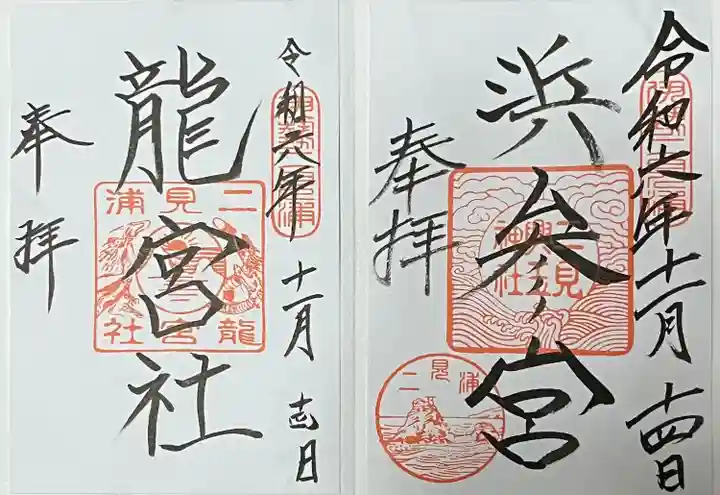 令和六年十一月十四日
浜参宮
奉拝
二見興玉神社
二見浦
令和六年十一月十四日
龍宮社
奉拝
二見浦
龍宮社